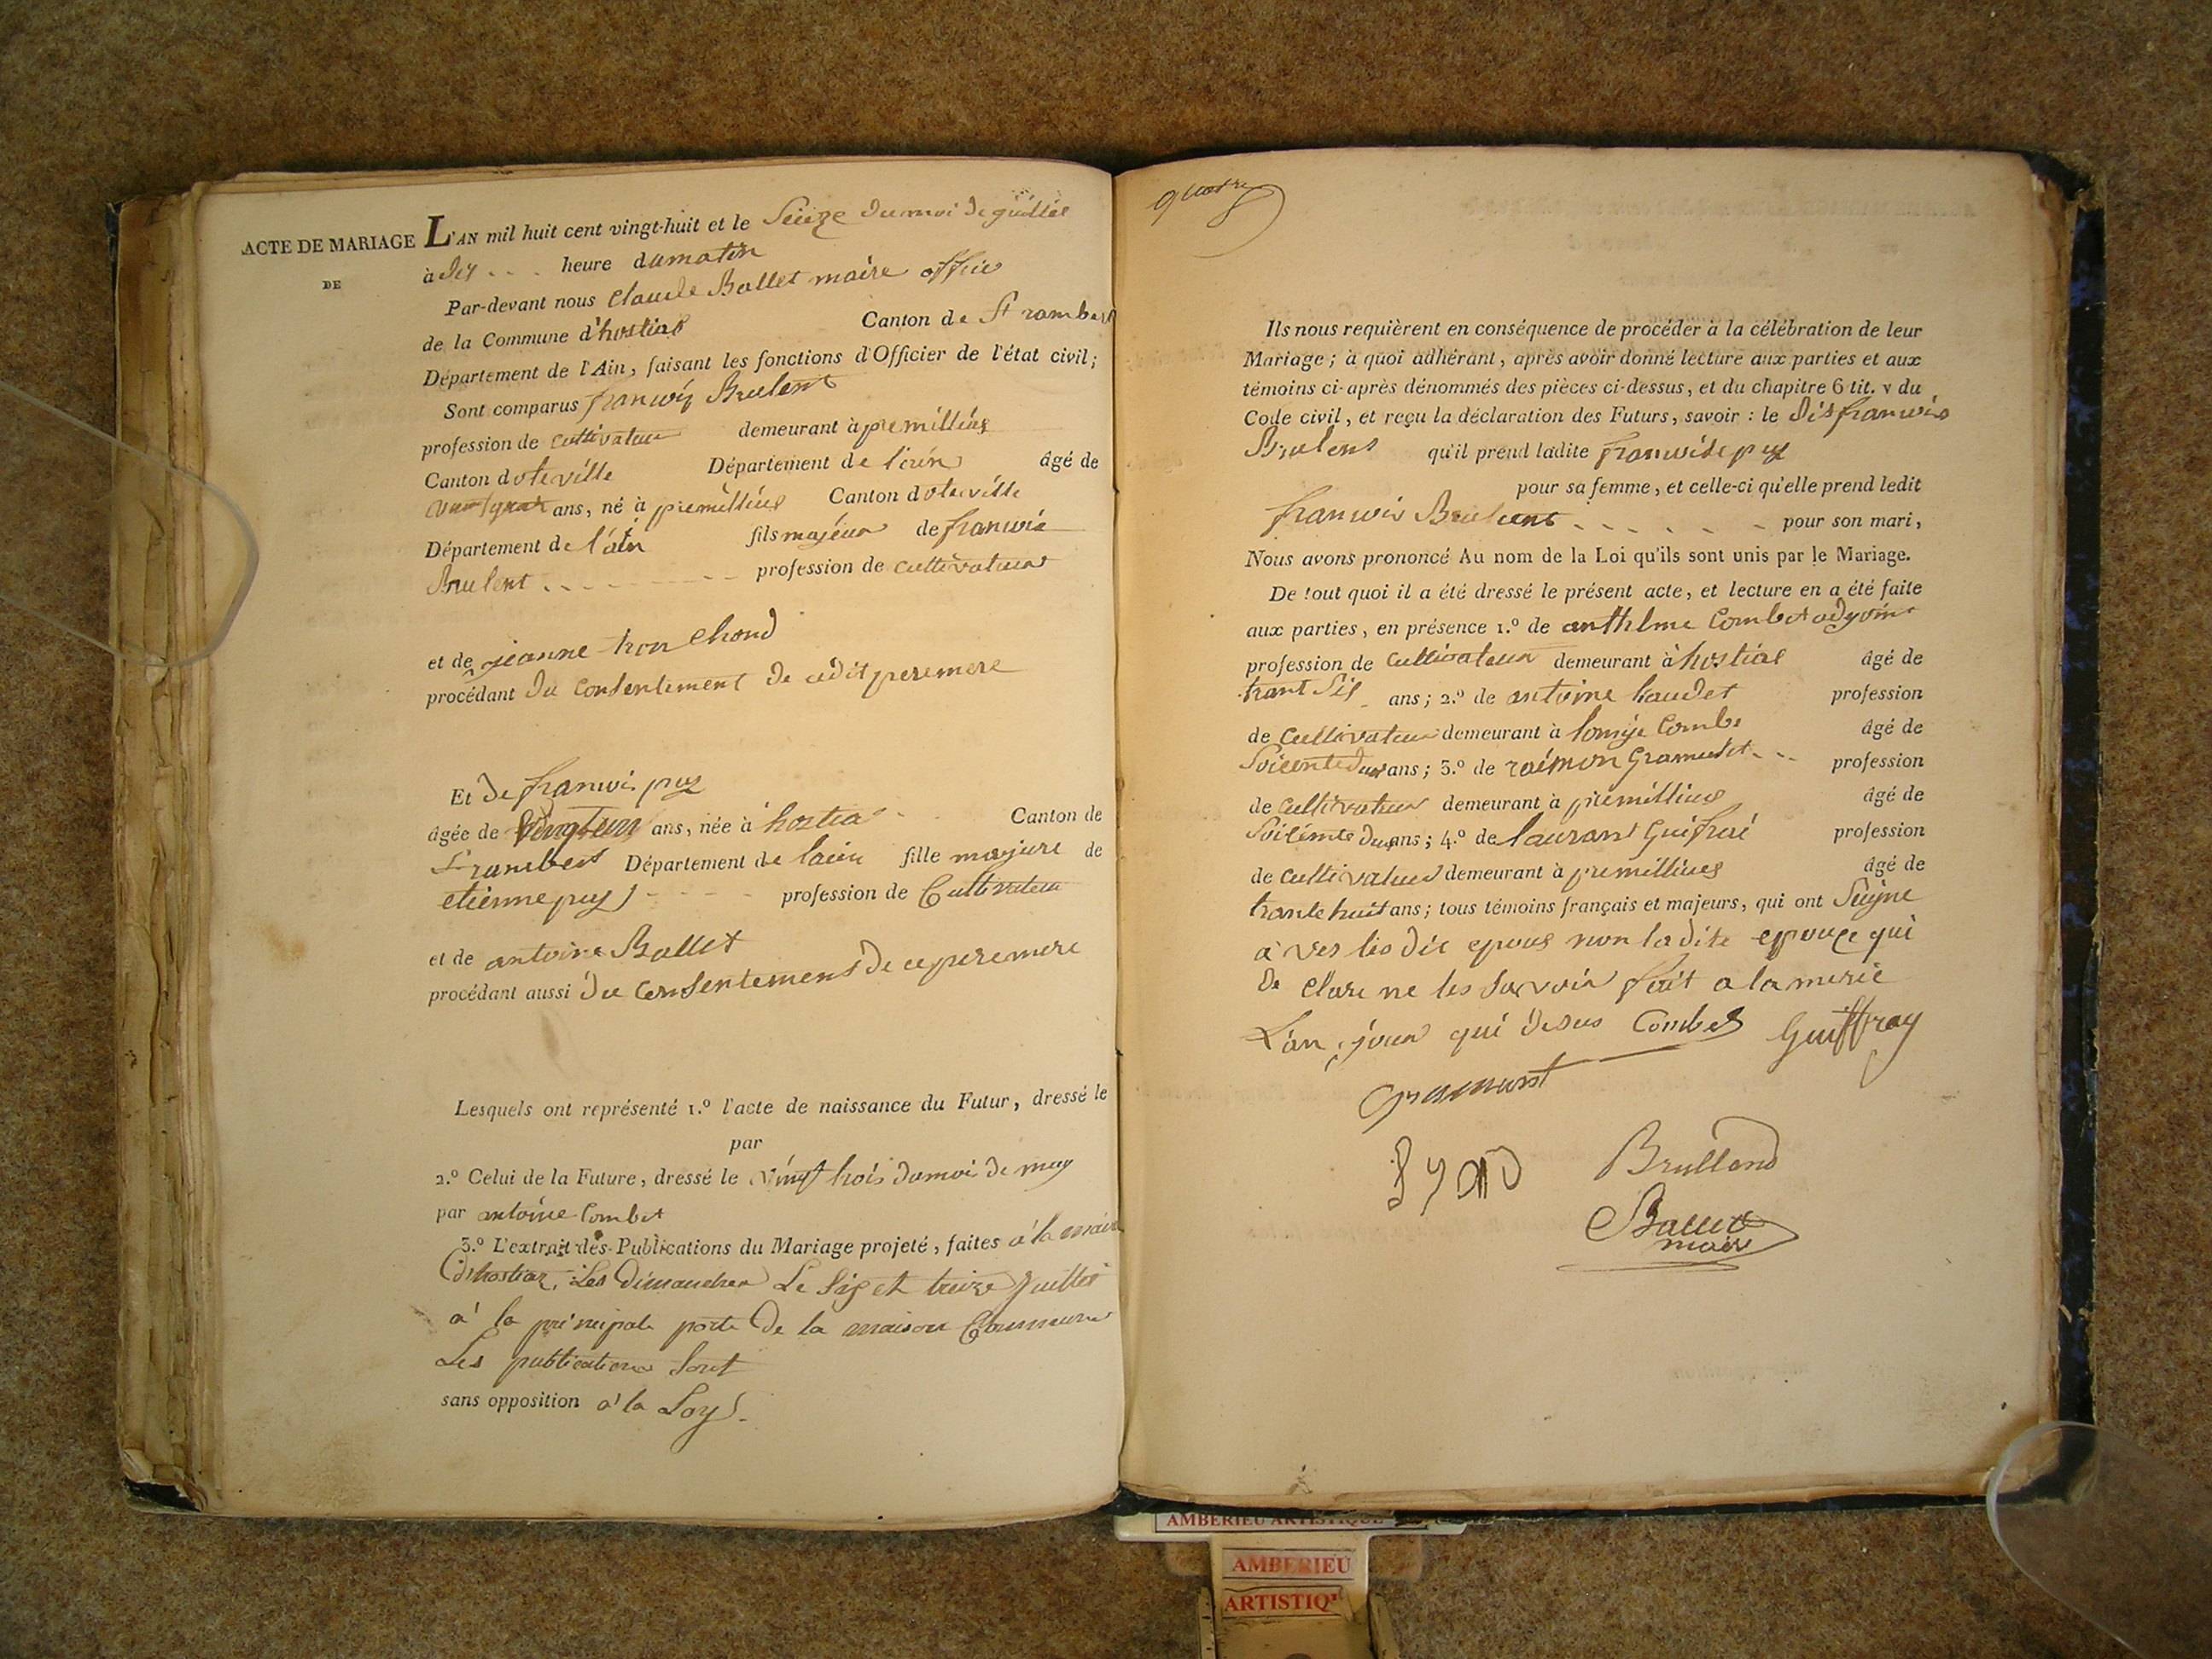 ACTE DE MARIAGE
DE
L'AN mil huit cent vingt-huit et le Seize du moi de guillet
à dix heure du matin
Par-devant nous Claude Ballet maire offici
de la Commune d'hostias Canton de St rambert
Département de l'Ain, faisant les fonctions d'Officier de l'état civil;
Sont comparus francois Brulent
profession de cultivateur demeurant à premillieu
Canton d oteville Département de l'ain âgé de
ans, né à premillieu Canton d oteville
Département de l'ain fils majeur de francois
Brulent profession de cultivateur
et de jeanne tronchond
procédant du consentement de cedit pere mere
Et de francois puy
âgée de ans, née à hostia Canton de
St rambert Département de lain fille majure de
etienne puy profession de Cultivateur
et de antoine Ballet
procédant aussi du consentement de ce pere mere
Lesquels ont représenté 1.º l'acte de naissance du Futur, dressé le
par
2.º Celui de la Future, dressé le vingt trois du moi de may
par antoine Combet
3.º L'extrait des Publications du Mariage projeté, faites à la mairi
d'hostiaz, Les Dimanches Le Six et treize Juillet
à la principale porte De la maison Commune
Les publications Sont
sans opposition à la Loy.
quatre
Ils nous requièrent en conséquence de procéder à la célébration de leur
Mariage; à quoi adhérant, après avoir donné lecture aux parties et aux
témoins ci-après dénommés des pièces ci-dessus, et du chapitre 6 tit. v du
Code civil, et reçu la déclaration des Futurs, savoir : le dit francois
Brulent qu'il prend ladite francoise puy
pour sa femme, et celle-ci qu'elle prend ledit
francois Brulent pour son mari,
Nous avons prononcé Au nom de la Loi qu'ils sont unis par le Mariage.
De tout quoi il a été dressé le présent acte, et lecture en a été faite
aux parties, en présence 1.º de anthelme Combet adgoint
profession de Cultivateur demeurant à hostias âgé de
trant Six ans; 2.º de antoine profession
de Cultivateur demeurant à Combe âgé de
ans; 3.º de raimon Gramuset profession
de cultivateur demeurant à premillieu âgé de
ans; 4.º de laurant Guifrai profession
de cultivateur demeurant à premillieu âgé de
trante huit ans; tous témoins français et majeurs, qui ont Seigne
a ves les dit epous non la dite epouce qui
de clare ne les savoir fait a la merie
L'an, jour qui desus Combet Guiffray
Bruland
Ballet
maire
AMBERIEU ARTISTIQUE
AMBERIEU
ARTISTIQ